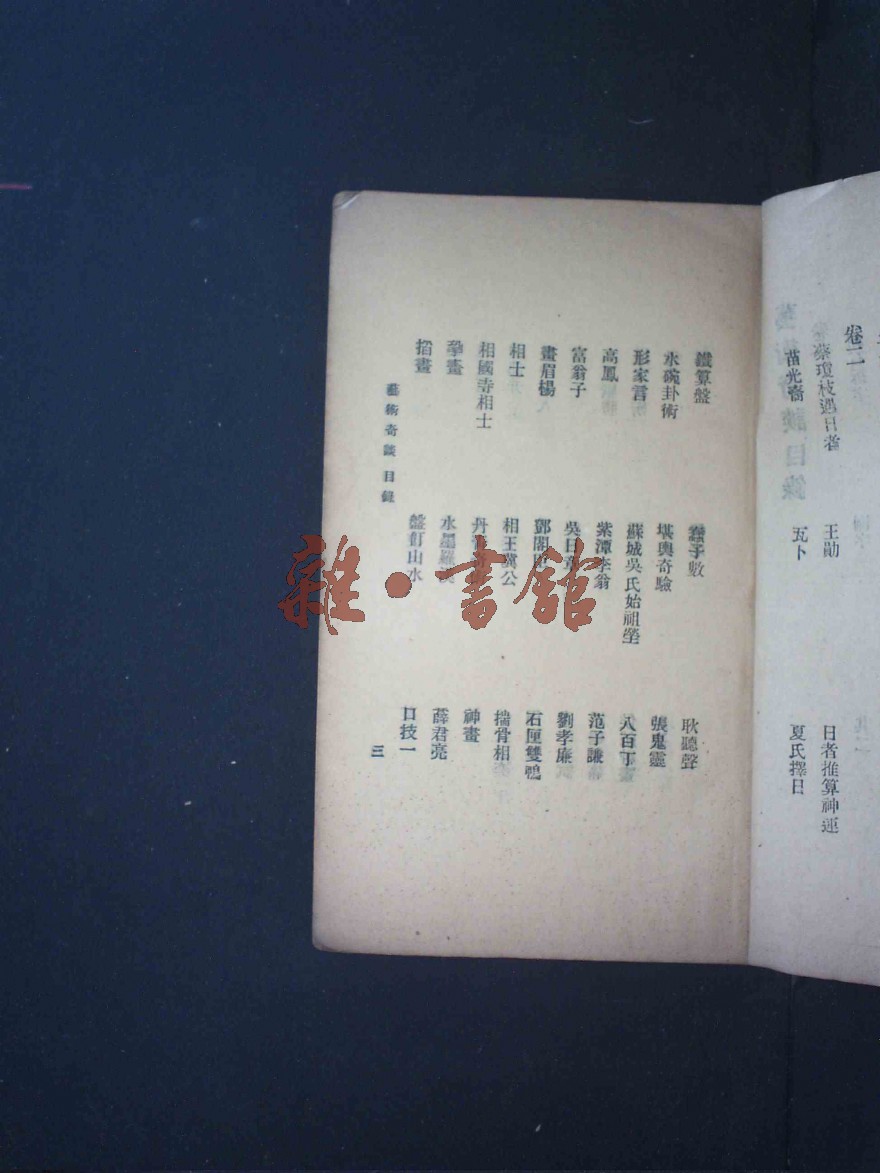 卷二
蔡瓊枝遇日者 王勛 日者推算神運
苗光裔 瓦卜 夏氏擇日
鐵算盤 蠢子數 耿聽聲
水碗卦術 堪輿奇驗 張鬼靈
形家言 蘇城吳氏始祖塋 八百丁
高鳳 紫潭李翁 范子謙
富翁子 吳日 劉孝廉
畫眉楊 鄧閣 石匣雙鴨
相士 相王冀公 揣骨相
相國寺相士 丹 神畫
水墨羅 薛君亮
搯畫 盤飣山水 口技一
藝術奇談 目錄 三
雜·書館